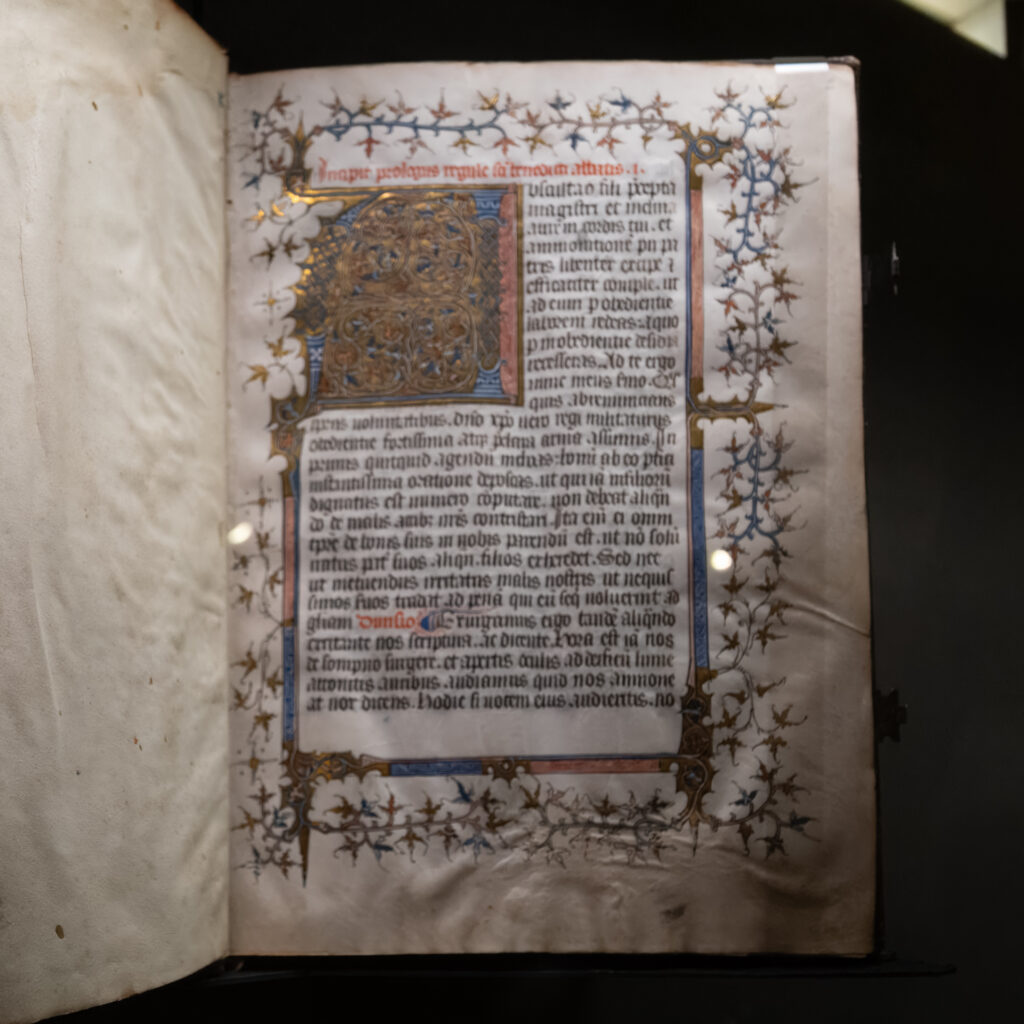 Incipit prologus regule sci benedicti abbatis . 1 .
bsculta o fili precepta
magistri et inclina
aurem cordis tui . et
ammonitione pii pa
tris libenter excipe 7
efficaciter comple . ut
ad eum p obedientie
laborem redeas : a quo
p inobedientie desidia
recesseras . Ad te ergo
nunc meus smo
quis abrenuncians
voluntatibus . dno xpo vero regi militaturus
obedientie fortissima atqz arma assumis . In
primis quicquid agendu inchoas : boni ab eo pfici
instantissima oratione deposcas . ut qui ia in filioru
dignatus est numero coputare . non debeat aliqn
do de malis actibz nris contristari . Ita eni ei omni
tpre de bonis suis in nobis parendu est . ut no solu
iratus pat suos . aliqn . filios exheredet . Sed nec
ut metuendus irritatus malis nostris ut nequis
simos suos tradat ad pena qui eu seq noluerint ad
gliam Divisio Exurgamus ergo tande aliqndo
excitante nos scriptura . ac dicente . Hora est ia nos
de sompno surgere . et apertis oculis ad deificu lume
attonitis auribus . audiamus quid nos ammone
at vox dicens . Hodie si vocem eius . audieritis . no